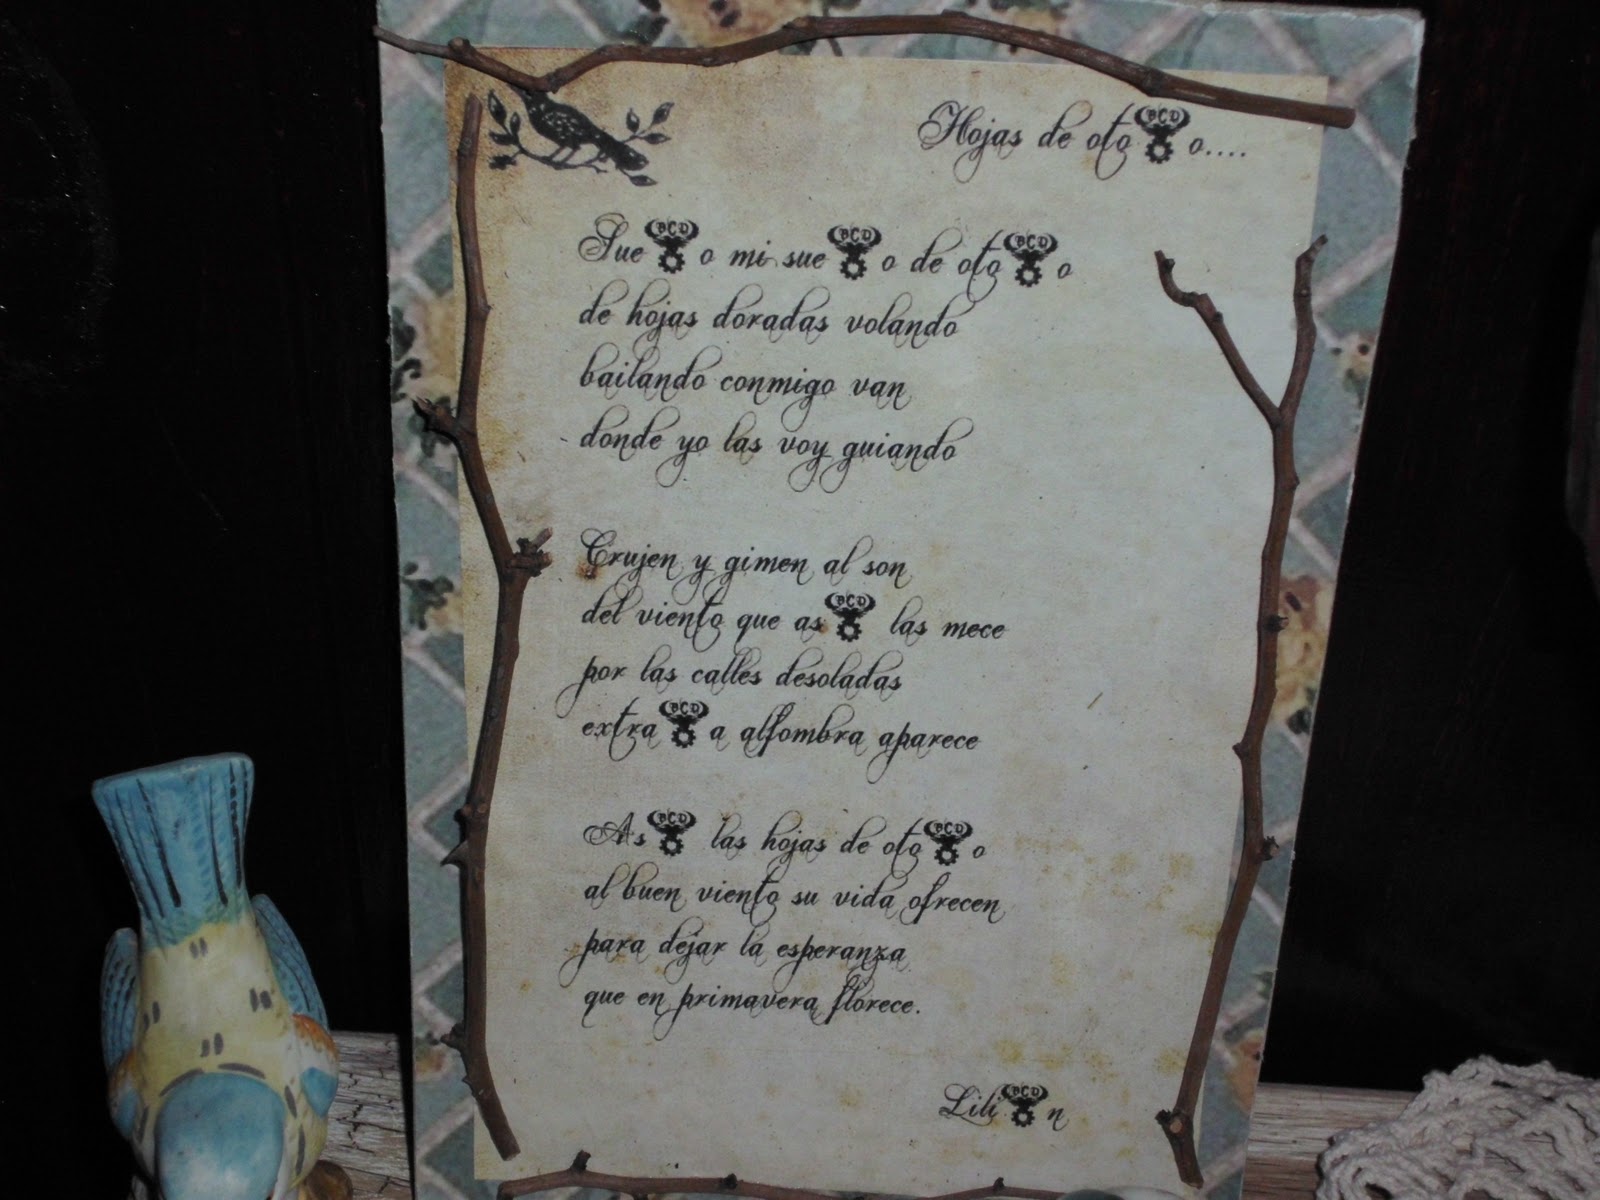 Hojas de otoBCDo....
SueBCDo mi sueBCDo de otoBCDo
de hojas doradas volando
bailando conmigo van
donde yo las voy guiando
Crujen y gimen al son
del viento que asBCD las mece
por las calles desoladas
extraBCDa alfombra aparece
AsBCD las hojas de otoBCDo
al buen viento su vida ofrecen
para dejar la esperanza
que en primavera florece.
LiliBCDn